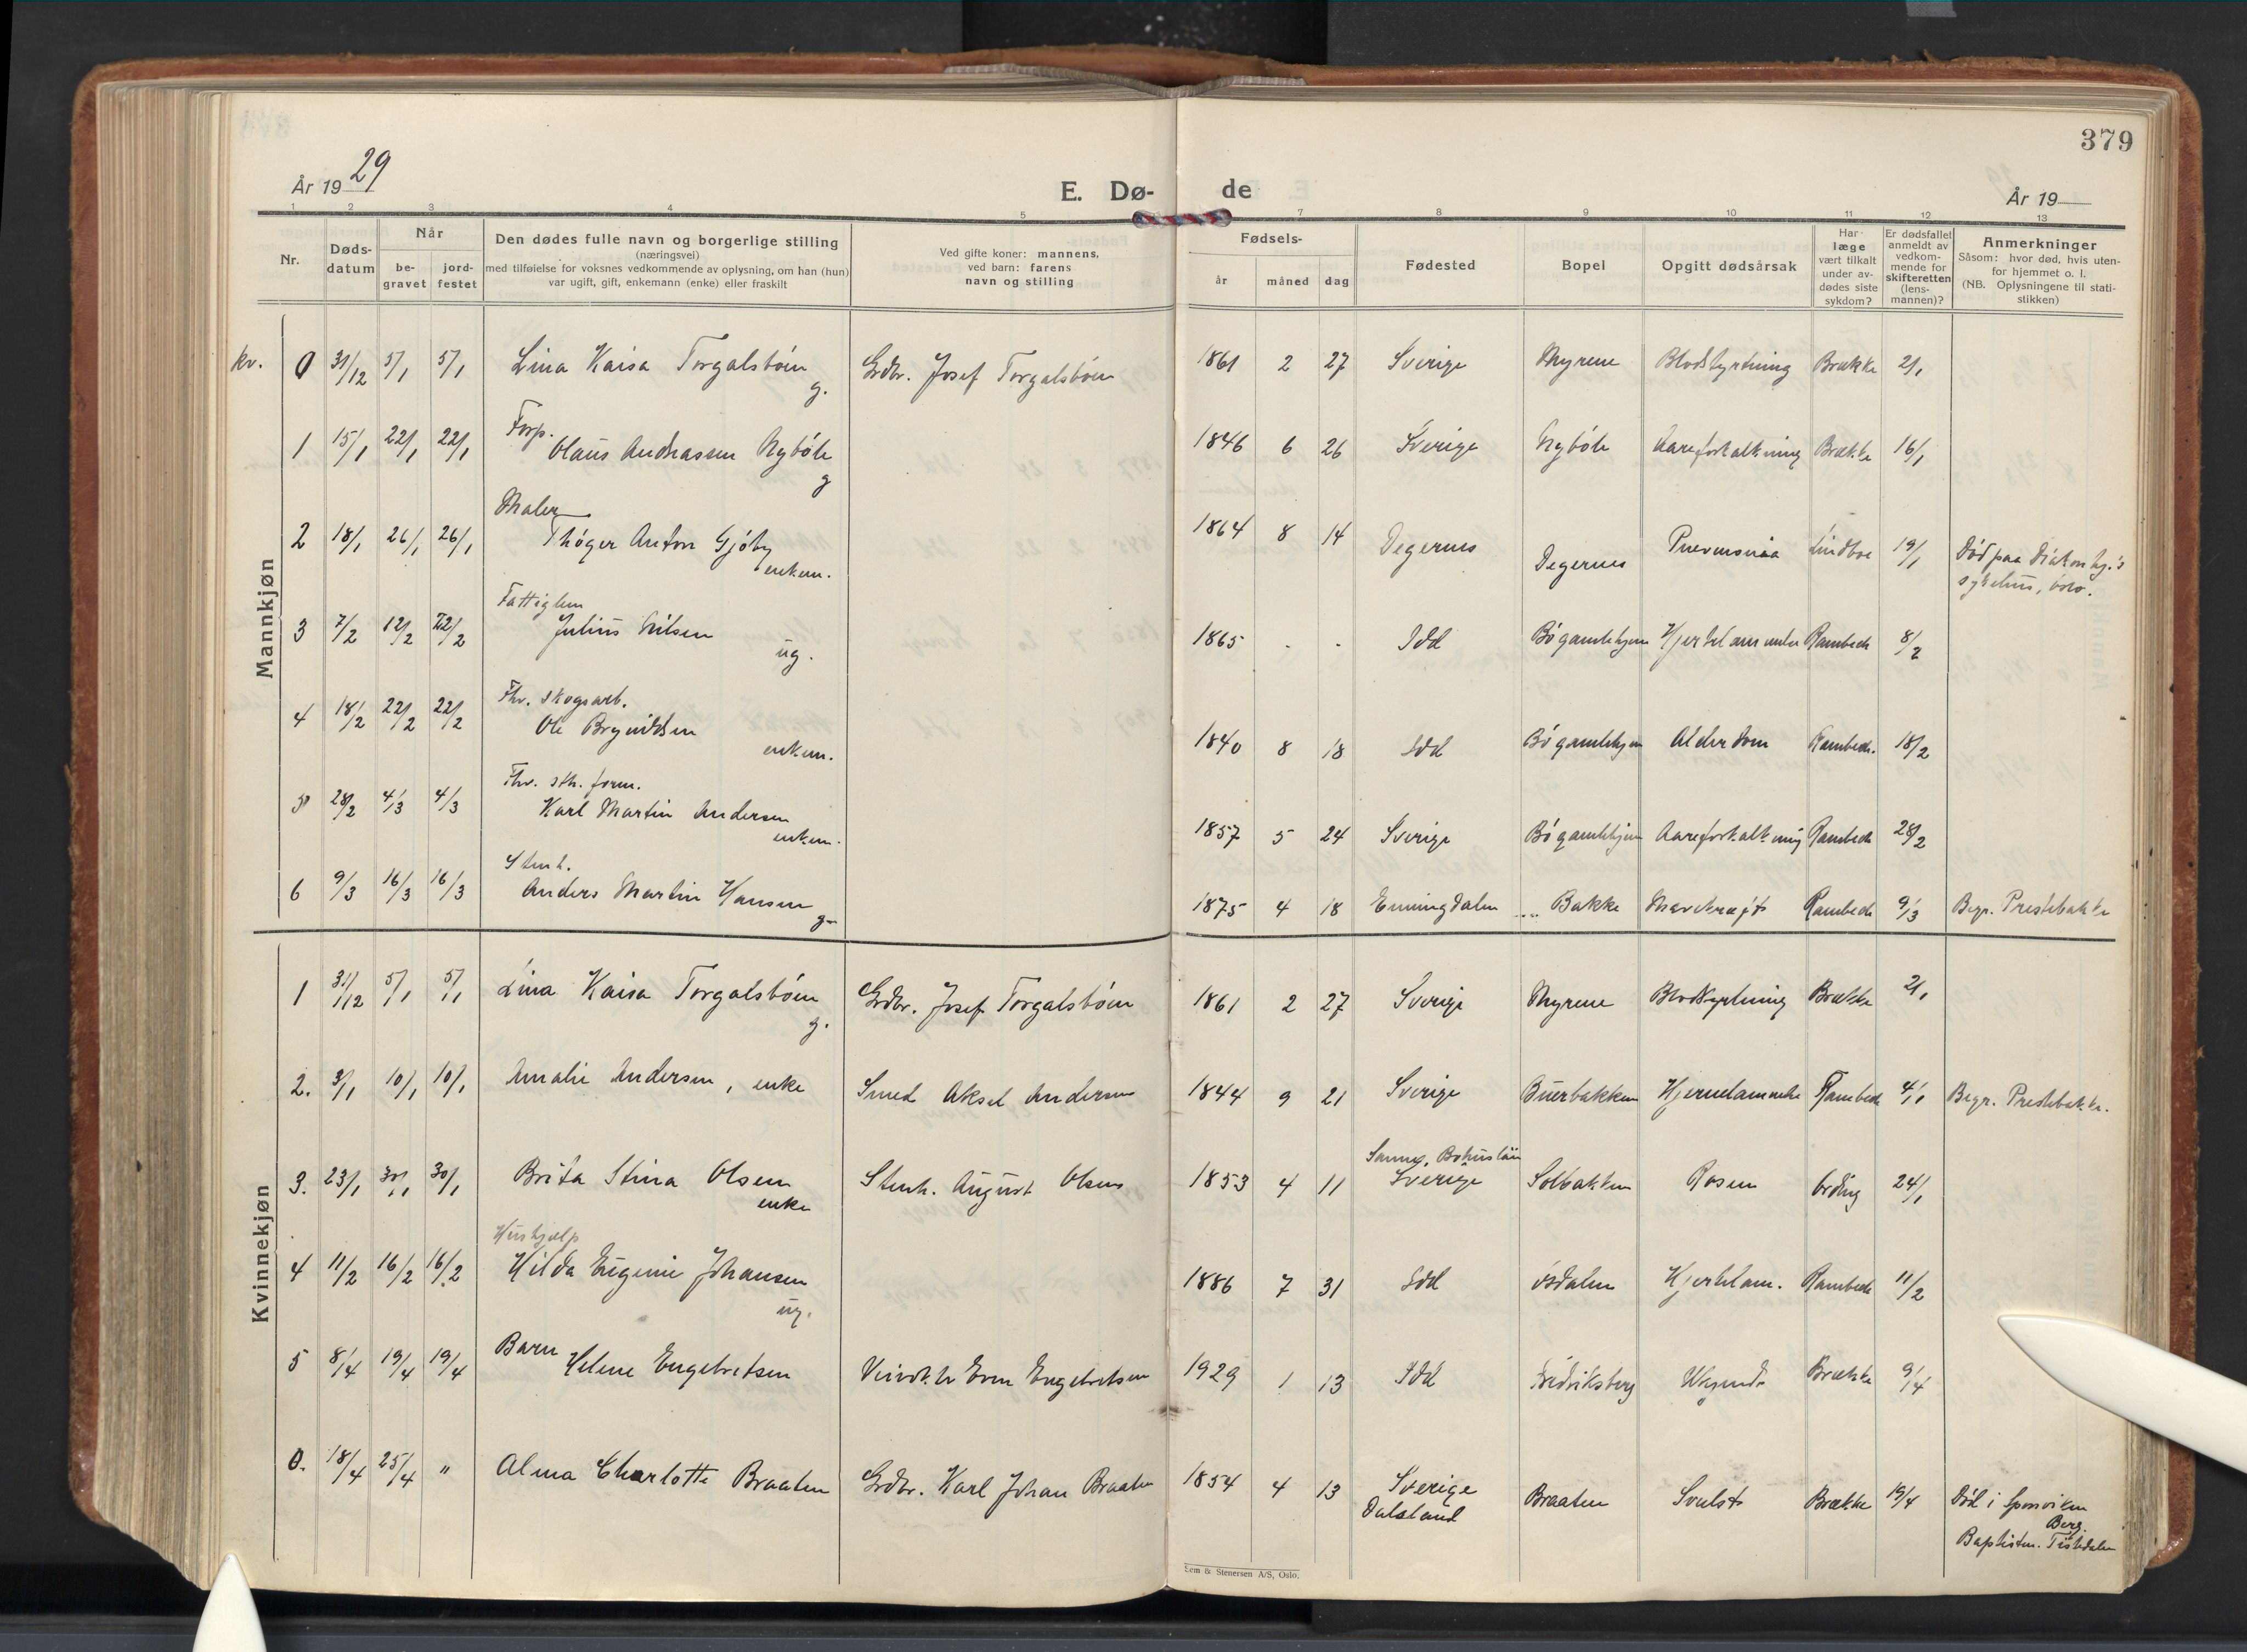 379
År 1929
E. Dø- de
År 19
1 2 3 4 5 7 8 9 10 11 12 13
Nr.
Døds-
datum
Når
be-
gravet
jord-
festet
Den dødes fulle navn og borgerlige stilling
(næringsvei)
med tilføielse for voksnes vedkommende av oplysning, om han (hun)
var ugift, gift, enkemann (enke) eller fraskilt
Ved gifte koner: mannens,
ved barn: farens
navn og stilling
Fødsels-
år måned dag
Fødested
Bopel
Opgitt dødsårsak
Har
læge
vært tilkalt
under av-
dødes siste
sykdom?
Er dødsfallet
anmeldt av
vedkom-
mende for
skifteretten
(lens-
mannen)?
Anmerkninger
Såsom: hvor død, hvis uten-
for hjemmet o. l.
(NB. Oplysningene til stati-
stikken)
Mannkjøn
kv. 0 31/12 5/1 5/1 Lina Kaisa Torgalsbøen Grdbr. Josef Torgalsbøen 1861 2 27 Sverige Myrene Blodstyrtning Brække 2/1
g.
Forp.
1 15/1 22/1 22/1 Olaus Andreassen Nybøle 1846 6 26 Sverige Nybøle Aareforkalkning Brække 16/1
g
Maler
2 18/1 26/1 26/1 Thøger Anton Gjøby 1864 8 14 Degernes Degernes Pnevmonia Lindboe 19/1 Død paa Diakonhj.'s
enkem. sykehus, Oslo.
Fattiglem
3 7/2 12/2 12/2 Julius Nilsen 1865 - - Idd Bø gamlehjem Hjertelammelse Rambech 8/2
ug.
Fhv. skogsarb.
4 18/2 22/2 22/2 Ole Brynildsen 1840 8 18 Idd Bø gamlehjem Alderdom Rambech. 18/2
enkem.
Fhv. sth. form.
5 28/2 4/3 4/3 Karl Martin Andersen 1857 5 24 Sverige Bø gamlehjem Aareforkalkning Rambech 28/2
enkem.
Stenh.
6 9/3 16/3 16/3 Anders Martin Hansen 1875 4 18 Enningdalen Bakke Mavekræft Rambech 9/3 Begr. Prestebakke
g
Kvinnekjøn
1 31/12 5/1 5/1 Lina Kaisa Torgalsbøen Grdbr. Josef Torgalsbøen 1861 2 27 Sverige Myrene Blodstyrtning Brække 2/1
g.
2. 3/1 10/1 10/1 Amalie Andersen, enke Smed Aksel Andersen 1844 9 21 Sverige Buerbakken Hjernelammelse Rambech 4/1 Begr. Prestebakke.
Sanne, Bohuslän
3. 23/1 30/1 30/1 Brita Stina Olsen Stenh. August Olsens 1853 4 11 Sverige Solbakken Rosen Ording 24/1
enke
Hushjelp
4 11/2 16/2 16/2 Hilda Eugenie Johansen 1886 7 31 Idd Isdalen Hjertelam. Rambech 11/2
ug.
Barn
5 8/4 19/4 19/4 Helene Engebretsen Even Engebretsen 1929 1 13 Idd Fredriksberg Brække 9/4
0. 18/4 25/4 " Alma Charlotte Braaten Grdbr. Karl Johan Braaten 1854 4 13 Sverige Braaten Svulst Brække 19/4 Død i Sponviken
Dalsland Berg.
Baptisten. Tistedalen
Sem & Stenersen A/S, Oslo.